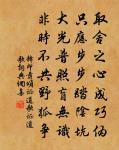 取舍之心成巧偽
只應步步踏陰坑
大光普照盲無識
非時不共野狐爭
釋印肅頌證道歌證道